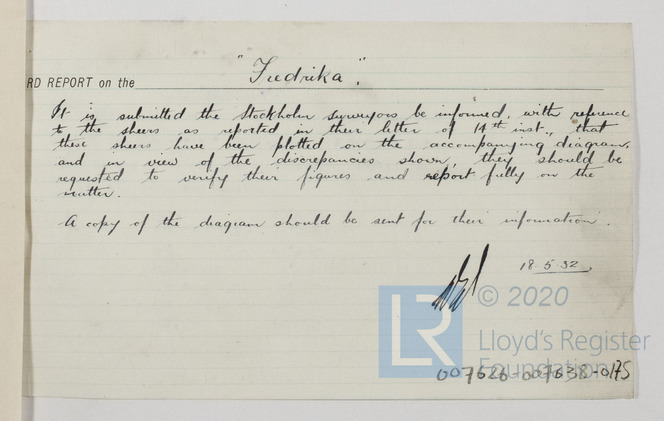 RD REPORT on the "Fredrika".
It is submitted the Stockholm surveyors be informed, with reference
to the sheers as reported in their letter of 14th inst., that
these sheers have been plotted on the accompanying diagram,
and in view of the discrepancies shown, they should be
requested to verify their figures and report fully on the
matter.
A copy of the diagram should be sent for their information.
18.5.32
LR © 2020
Lloyd's Register
Foundation
007626-007638-0175